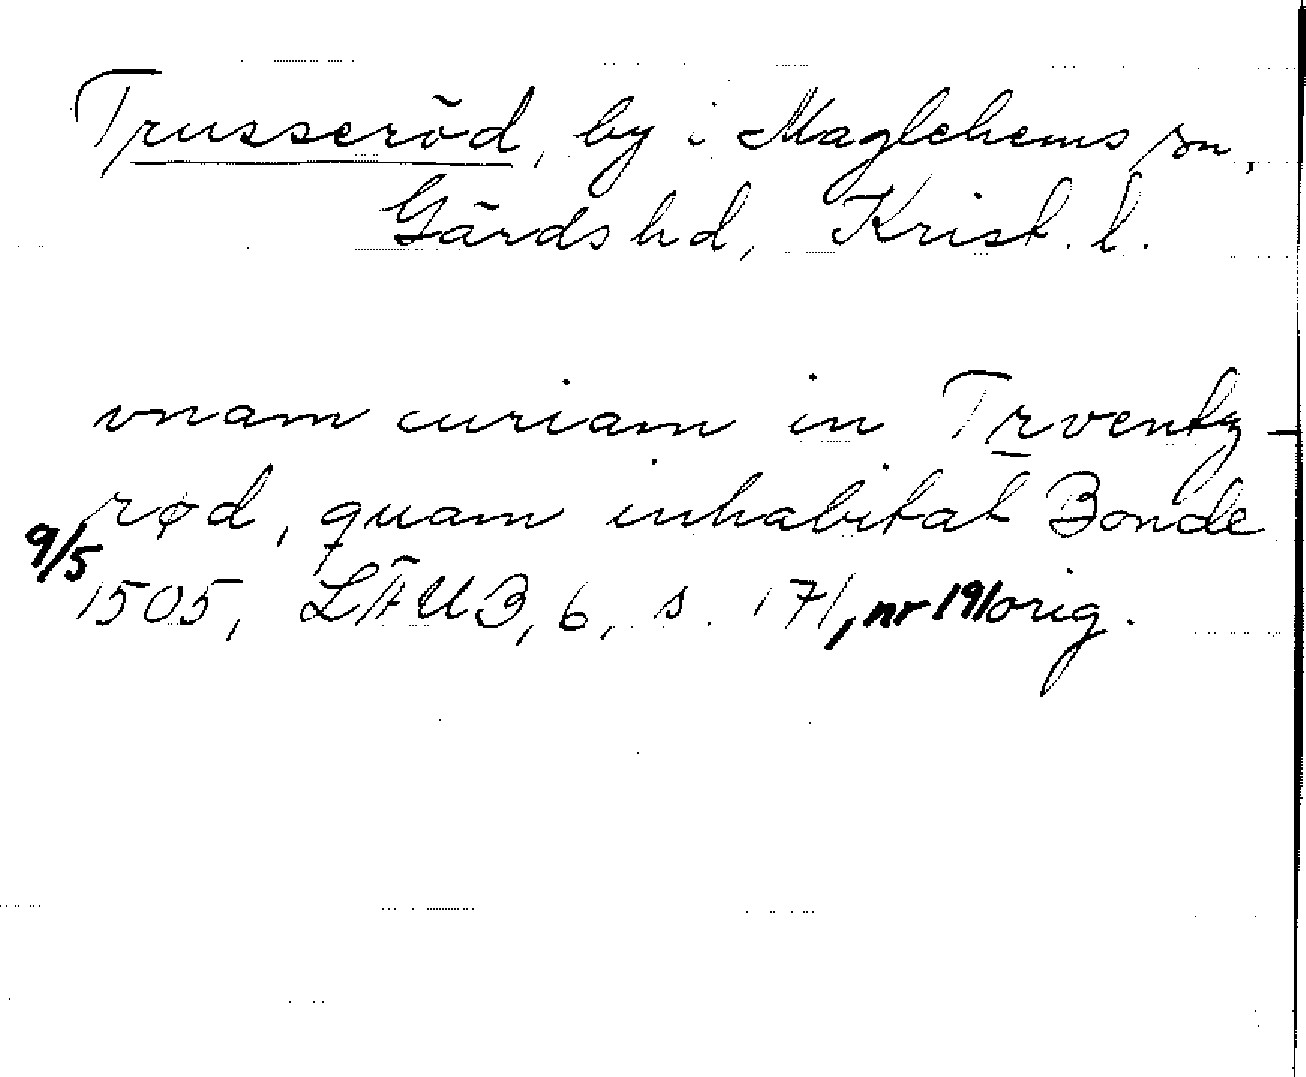 Trusseröd, by i Maglehems sn,
Gärds hd, Krist. l.
vnam curiam in Trventz-
rød, quam inhabitat Bonde
9/5 1505, LÄUB, 6, s. 171, nr 191 orig.